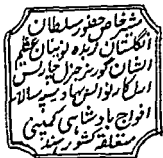 مشیر خاص حضور سلطان
انگلستان زبده نوئینان عظیم
الشان گورنر جنرل چارلس
ارل کارنوالس بهادر سپه سالار
افواج بادشاهی کمپنی
متعلقه کشور هند